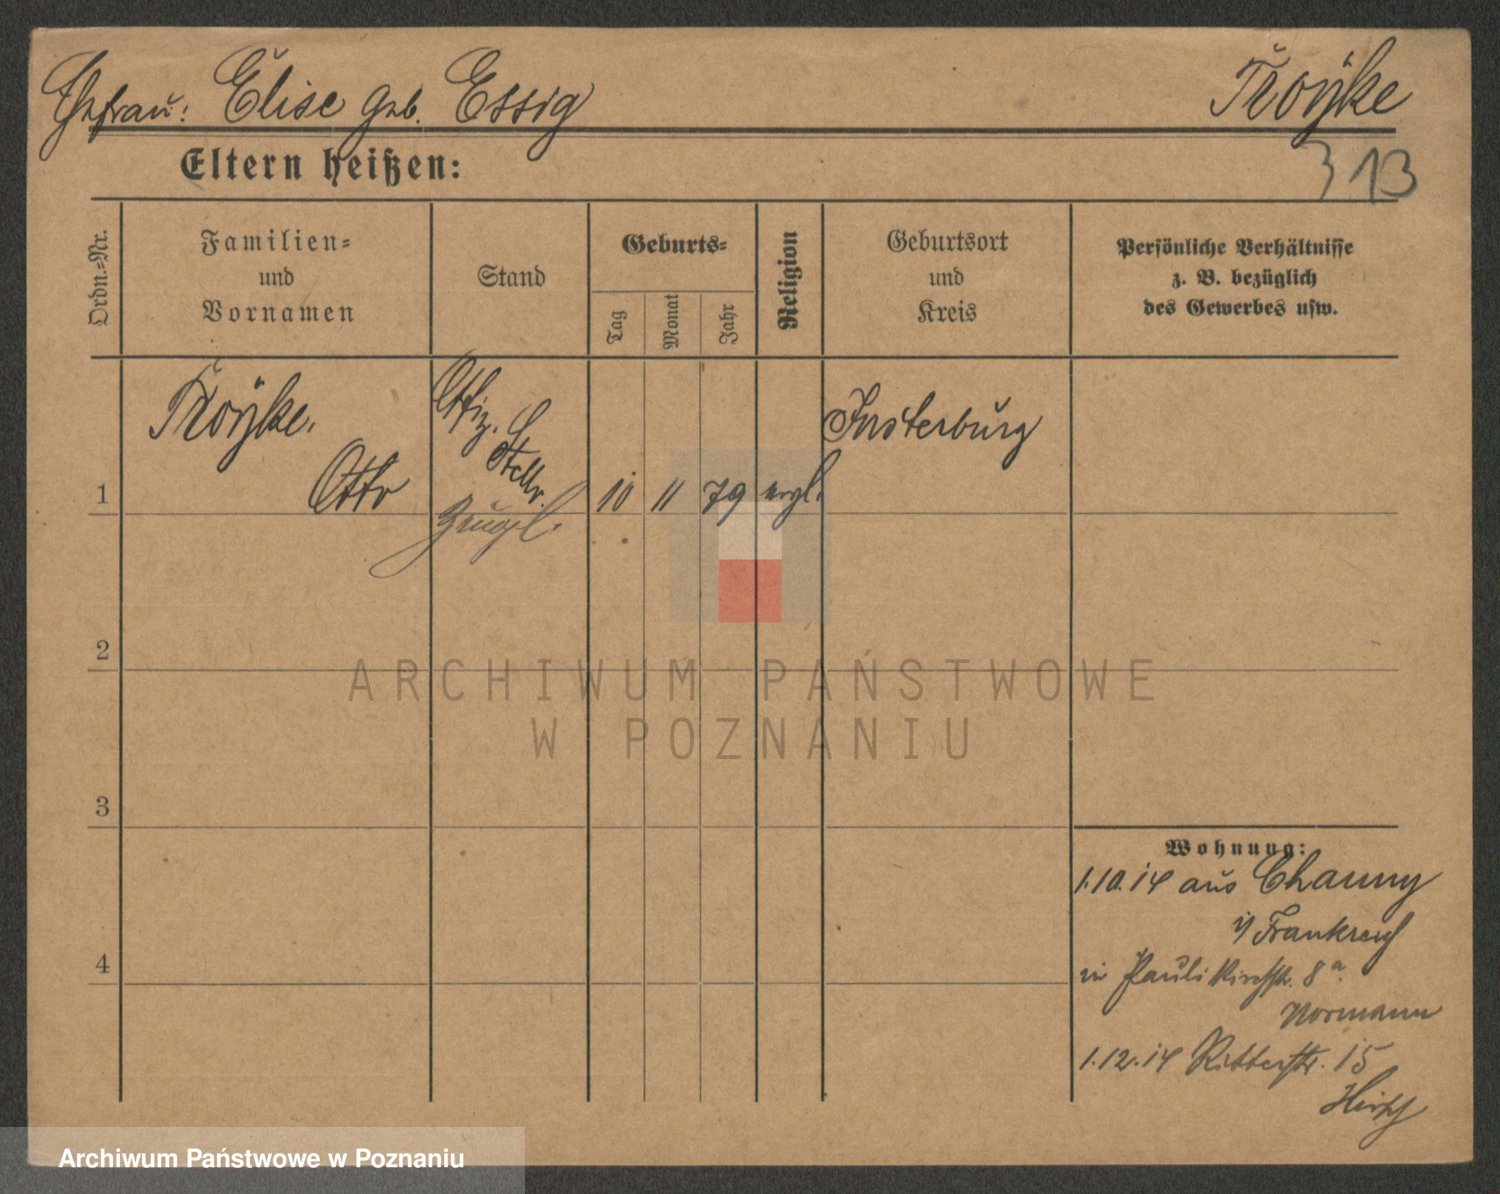 Ehefrau: Elise geb. Essig
Troyke
313
Eltern heißen:
Ordn.=Nr.
Familien=
und
Vornamen
Stand
Geburts=
Tag
Monat
Jahr
Religion
Geburtsort
und
Kreis
Persönliche Verhältnisse
z. B. bezüglich
des Gewerbes usw.
Troyke,
Otto
Offiz.
Stellv.
1
10 11 79 evgl.
Insterburg
2
ARCHIWUM PAŃSTWOWE
W POZNANIU
3
Wohnung:
1.10.14 aus Chauny
i/ Frankreich
4
in Paulikirchstr. 8a
Normann
1.12.14 Ritterstr. 15
Hirsch
Archiwum Państwowe w Poznaniu